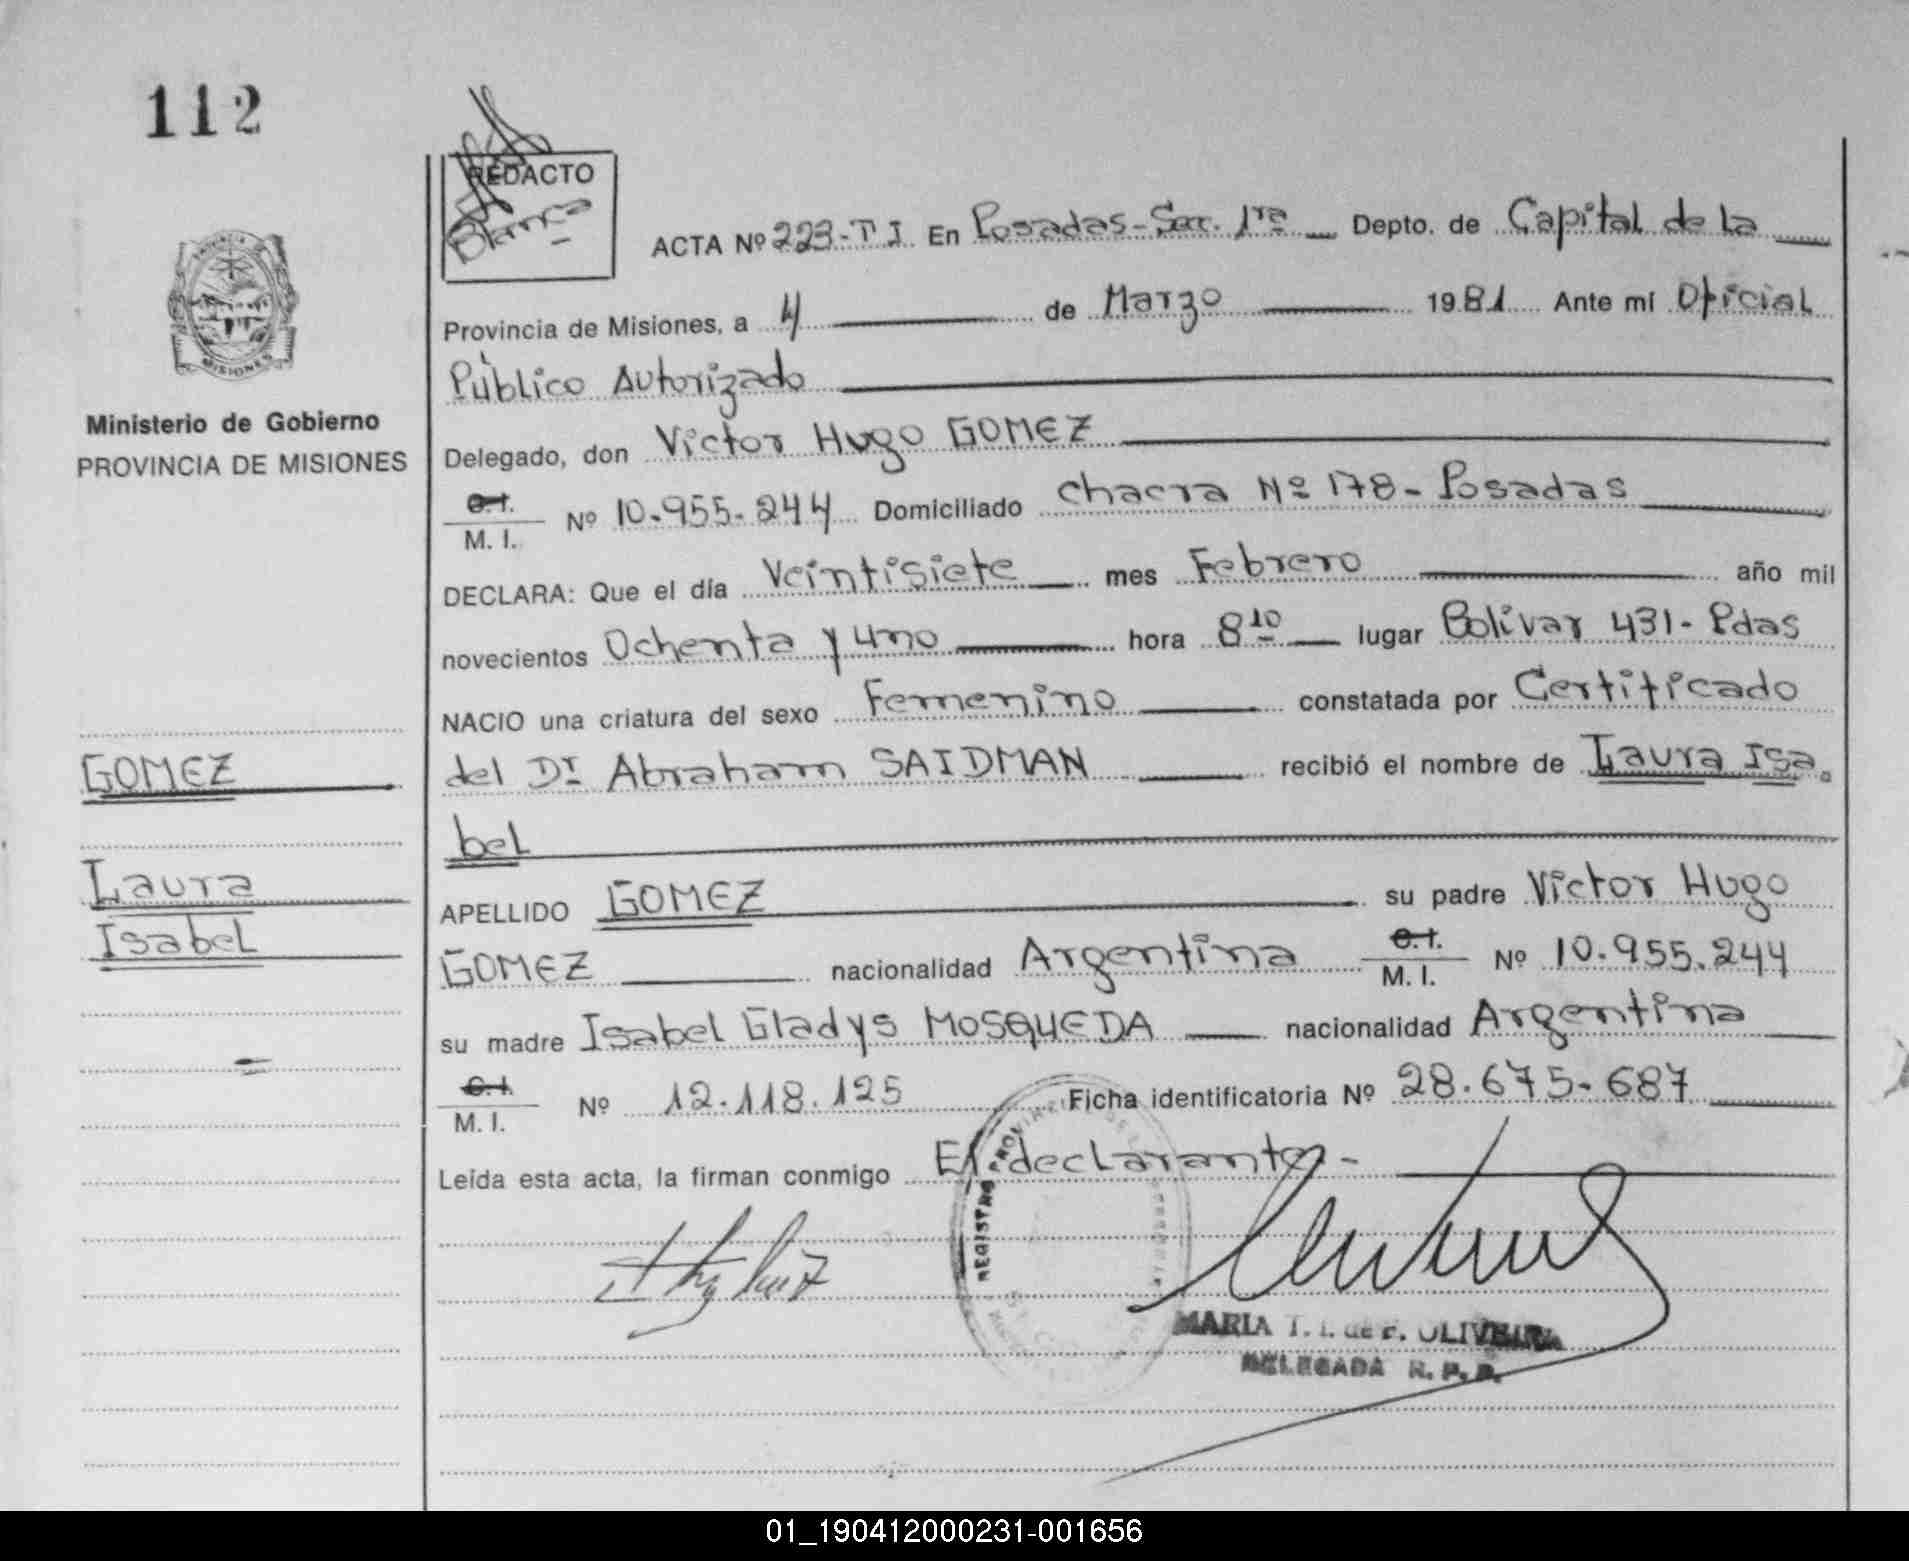 112
REDACTO
Blanca
ACTA Nº 223-T I. En Posadas-Sec. 1ra Depto. de Capital de la
Provincia de Misiones, a 4 de Marzo 1981 Ante mí Oficial
Público Autorizado
Delegado, don Victor Hugo GOMEZ
C.I. M. I. Nº 10.955.244 Domiciliado Chacra Nº 178- Posadas
DECLARA: Que el día Veintisiete mes Febrero año mil
novecientos Ochenta y uno hora 8 10 lugar Bolívar 431- Pdas
NACIO una criatura del sexo Femenino constatada por Certificado
del Dr Abraham SAIDMAN recibió el nombre de Laura Isa
bel
APELLIDO GOMEZ su padre Victor Hugo
GOMEZ nacionalidad Argentina C.I. M. I. Nº 10.955.244
su madre Isabel Gladys MOSQUEDA nacionalidad Argentina
C.I. M. I. Nº 12.118.125 Ficha identificatoria Nº 28.675-687
Leída esta acta, la firman conmigo El declarante-
REGISTRO PROVINCIAL DE LAS PERSONAS
MARIA T. I. de F. OLIVEIRA
DELEGADA R. P. P.
MISIONES
Ministerio de Gobierno
PROVINCIA DE MISIONES
GOMEZ
Laura
Isabel
01_190412000231-001656